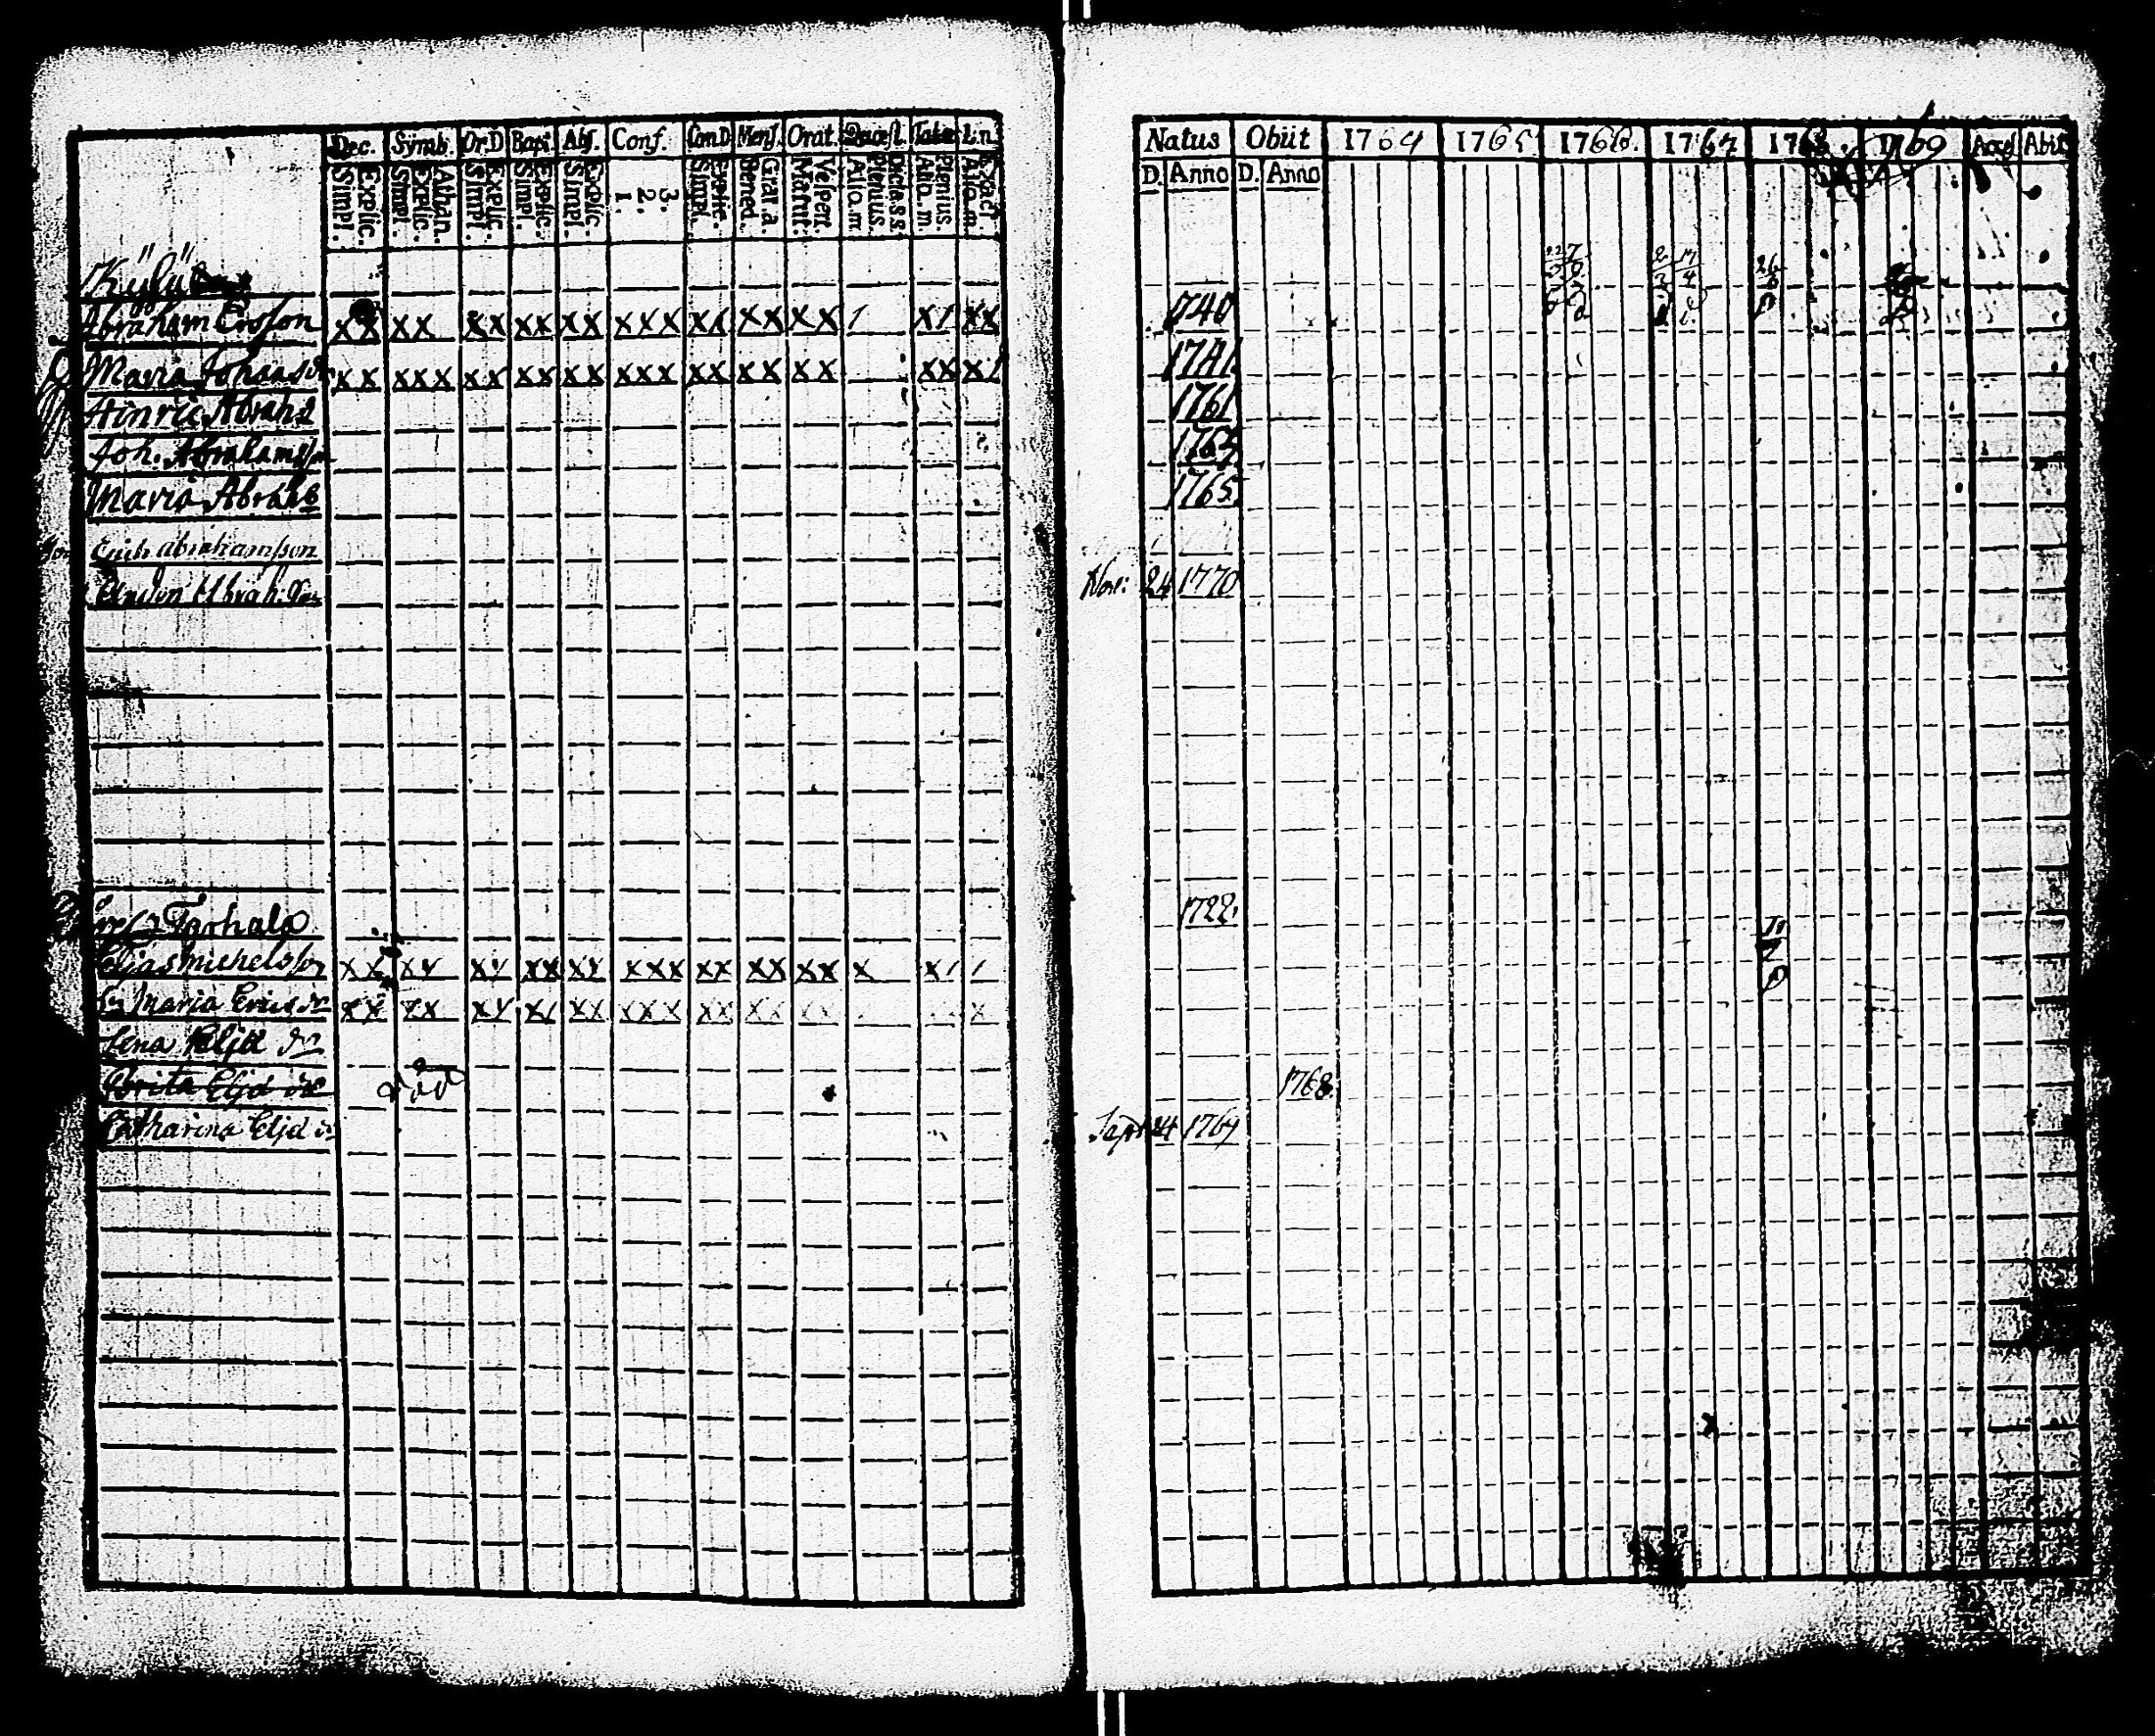 Dec. Symb. Or.D Bapt. Abs. Conf. Con.D Mens. Orat. Quæst. Tabæ L.n.
Simpl. Explic. Simpl. Explic. Athan. Simpl. Explic. Simpl. Explic. Simpl. Explic. 1. 2. 3. Simpl. Explic. Bened. Grat.a. Matut. Vespert. Alio.m. Plenius. Dicta.s.s. Alio.m. Plenius. Alio.m. Exact.
Kÿlÿ
Abraham Ersson XX XX XX XX XX XXX XX XX XX 1 X1 XX
Maria Johansdr XX XXX XX XX XX XXX XX XX XX XX X1
Hinric Abrah
Joh. Abrahamsson
Maria Abrah
Erich abrahamsson
Abrah.
Tarhala
Elias Michelsson XX XX XX XX XX XXX XX XX XX X X1 1
h. Maria Ericsdr XX XX XX X1 XX XXX XX XX XX X
Lena Eljæ dr
Brita Eljæ dr död
Catharina Eljæ dr
Natus Obiit 1764 1765. 1766. 1767 1768. 1769 Acces Abit
D. Anno D. Anno
1740
1741.
1761
1765.
Nov: 24 1770
1722.
1768.
Sept 24 1769